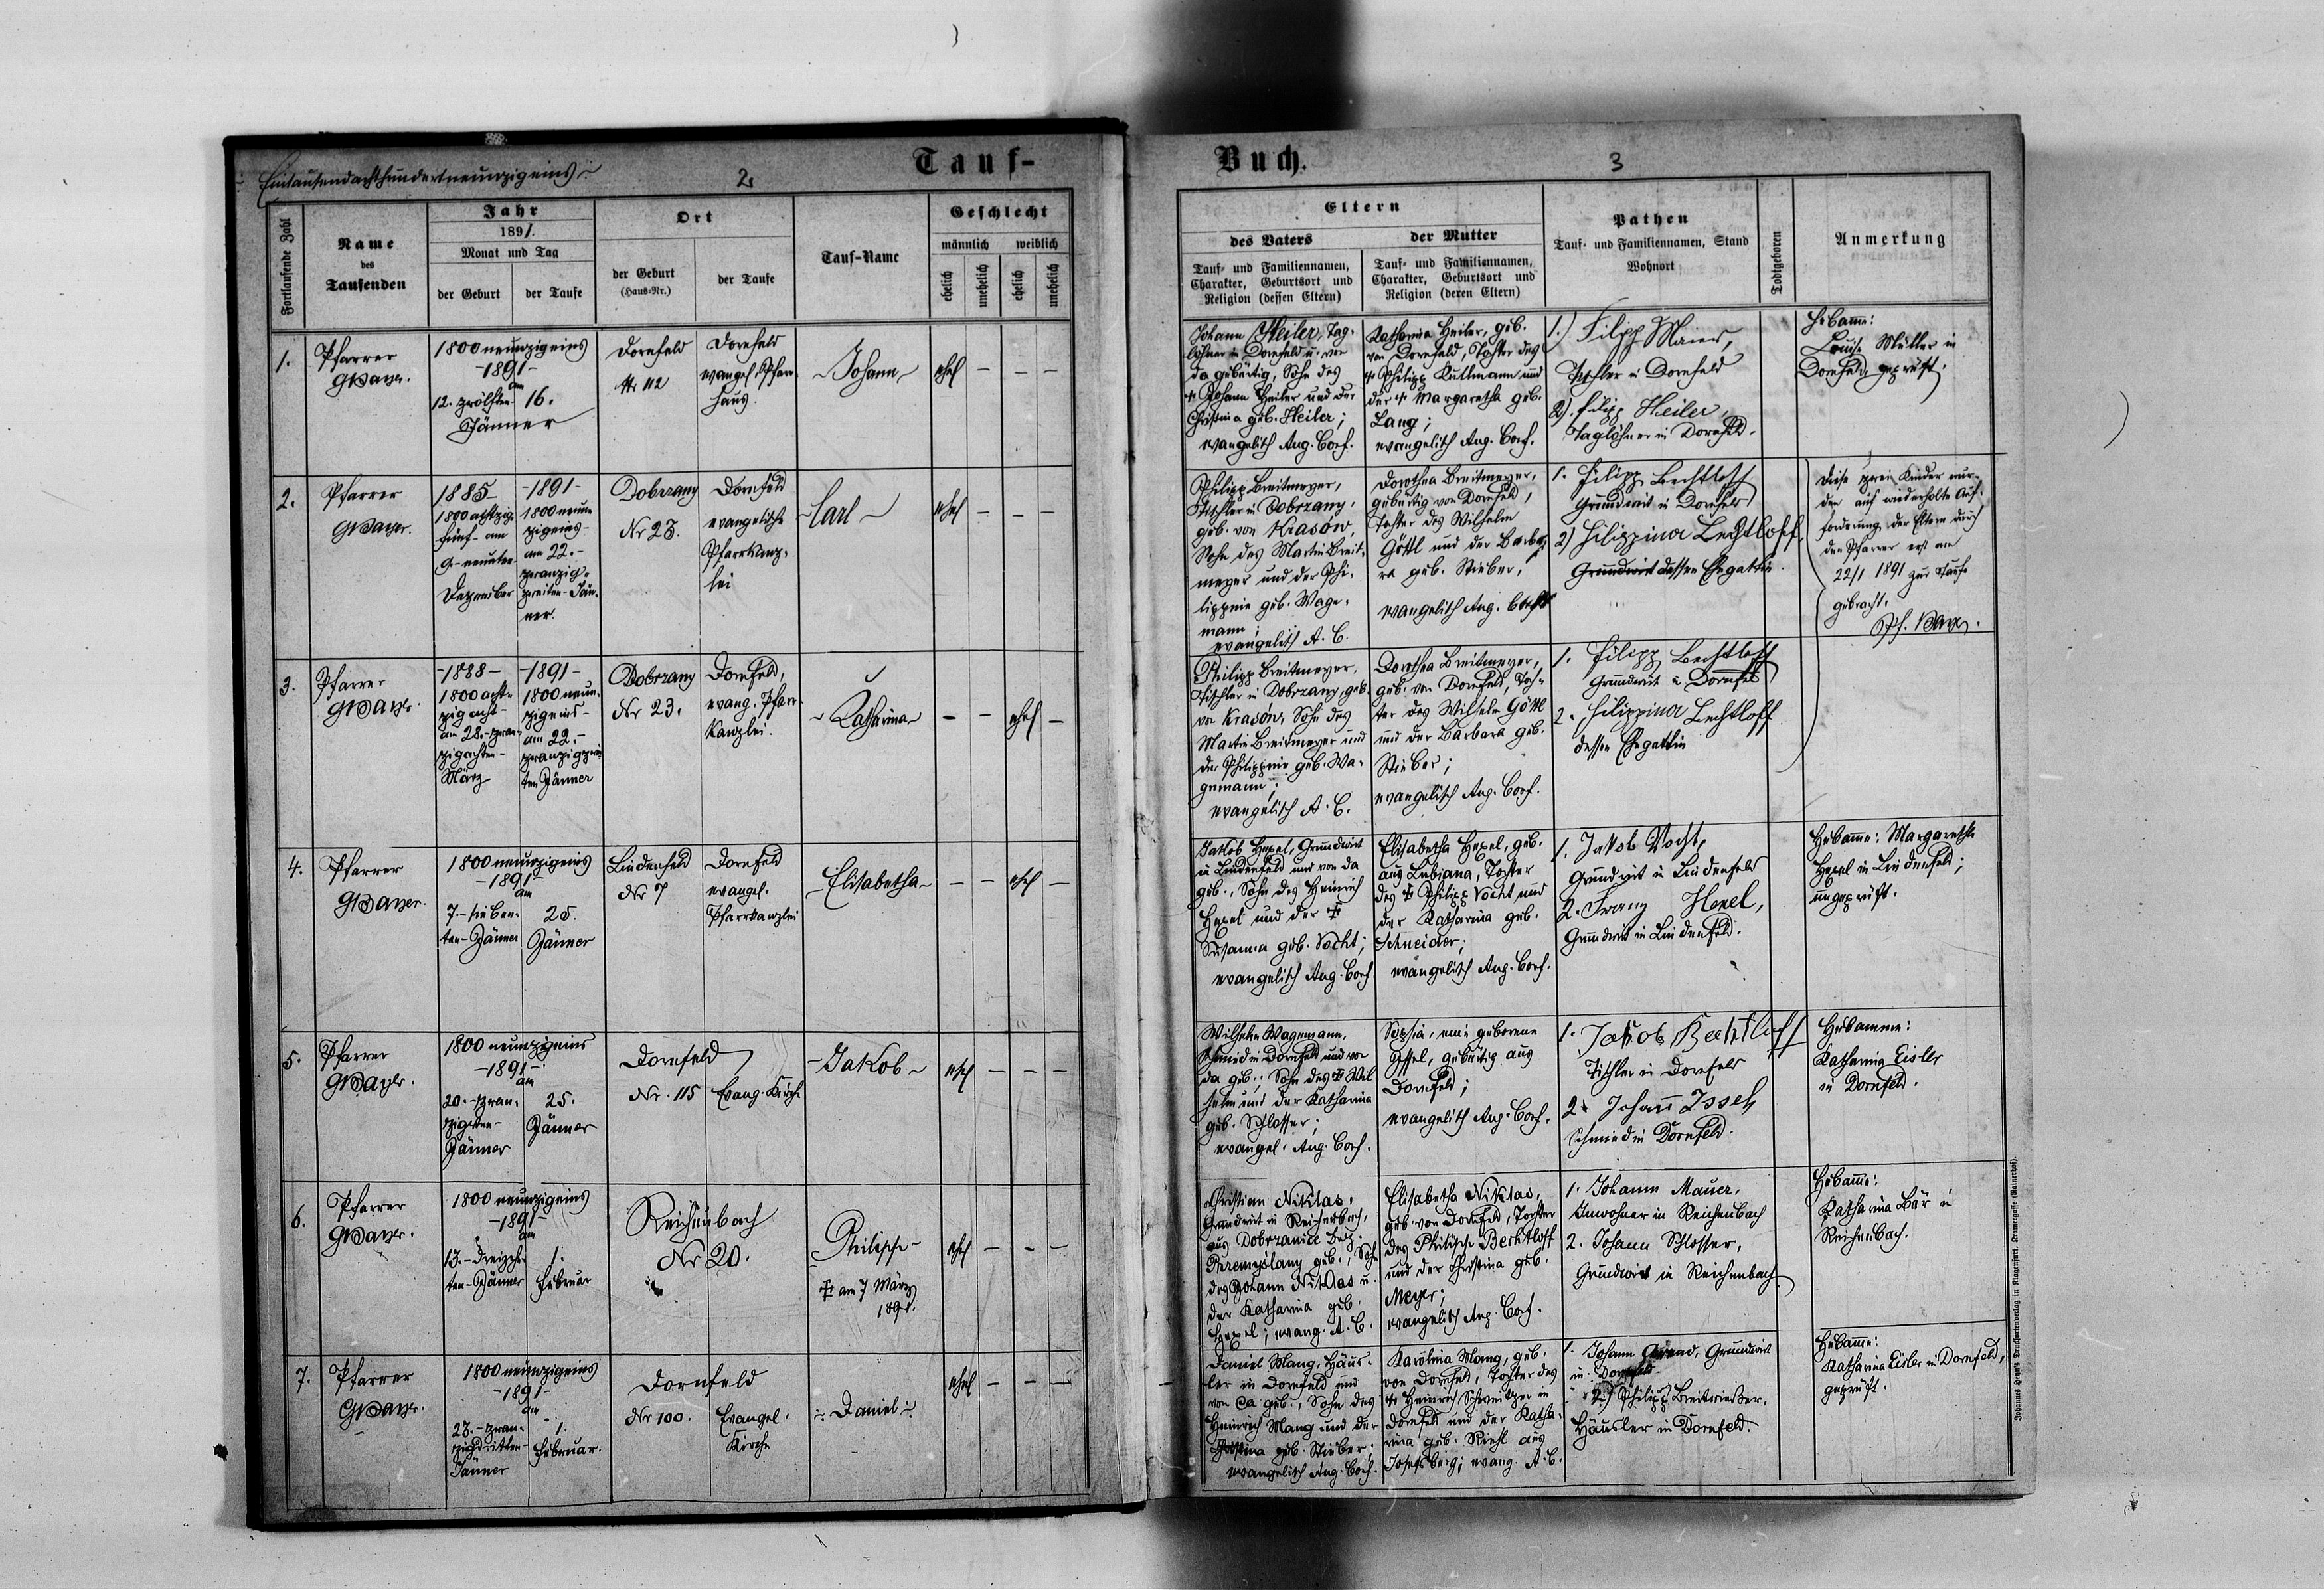 Eintausendachthundertneunzigeins
2.
Tauf-
Fortlaufende Zahl
Name
des
Taufenden
Jahr
1891.
Monat und Tag
der Geburt
der Taufe
Ort
der Geburt
(Haus-Nr.)
der Taufe
Tauf-Name
Geschlecht
männlich
weiblich
ehelich
unehelich
ehelich
unehelich
1.
Pfarrer
1800 neunzigeins
-1891-
am
12. zwölften
16.
Jänner
Dornfeld
Nr 112
Dornfeld
evangel. Pfarr-
haus.
Johann
ehel
2.
Pfarrer
1885-
1800 achtzig-
fünf- am
9- neunten
Dezember
-1891-
1800 neun-
zigeins-
am 22.-
zwanzig-
zweiten- Jän-
ner.
Dobrzany
Nr 23.
Dornfeld
evangelische
Pfarrkanz-
lei
Carl
ehel
3.
Pfarrer
-1888-
1800 acht-
zigacht-
am 28.- zwan-
zigachten-
März
-1891-
1800 neun-
zigeins-
am 22.-
zwanzigzwei-
ten Jänner
Dobrzany
Nr 23.
Dornfeld,
evang. Pfarr-
kanzlei.
Katharina
ehel
4.
Pfarrer
1800 neunzigeins
-1891-
am
7.- sieben-
ten- Jänner
25.
Jänner
Lindenfeld
Nr 7
Dornfeld
evangel.
Pfarrkanzlei
Elisabetha
ehel
5.
Pfarrer
1800 neunzigeins
-1891-
am
20.- zwan-
zigsten-
Jänner
25.
Jänner
Dornfeld
Nr. 115
Evang. Kirche
Jakob
ehel
6.
Pfarrer
1800 neunzigeins
-1891-
am
13.- dreizehn-
ten- Jänner
1.
Februar
Reichenbach
Nr 20.
Philipp
am 7 März
1891.
ehel
7.
Pfarrer
1800 neunzigeins
-1891-
am
23.- zwan-
zigdritten-
Jänner
1.
Februar.
Dornfeld
Nr 100.
Evangel.
Kirche
Daniel
ehel
Buch.
3
Eltern
des Vaters
Tauf- und Familiennamen,
Charakter, Geburtsort und
Religion (dessen Eltern)
der Mutter
Tauf- und Familiennamen,
Charakter, Geburtsort und
Religion (deren Eltern)
Pathen
Tauf- und Familiennamen, Stand
Wohnort
Todtgeboren
Anmerkung
Johann Heiler, Tag-
löhner in Dornfeld u. von
da gebürtig, Sohn des
Johann Heiler und der
Christina geb. Heiler;
evangelisch Aug. Conf.
Katharina Heiler, geb.
von Dornfeld, Tochter des
Philipp Kuttmann und
der Margaretha geb.
Lang;
evangelisch Aug. Conf.
1.) Filipp Maier,
Tischler in Dornfeld
2). Filipp Heiler,
Taglöhner in Dornfeld.
Hebamme:
Louise Müller in
Dornfeld, geprüft.
Philipp Breitmeyer,
Tischler in Dobrzany,
geb. von Krasów,
Sohn des Martin Breit-
meyer und der Phi-
lippine geb. Wage-
mann;
evangelisch A. C.
Dorothea Breitmeyer,
gebürtig von Dornfeld,
Tochter des Wilhelm
Göttl und der Barba-
ra geb. Stieber,
evangelisch Aug. Conf.
1. Filipp Bechtloff
Grundwirt in Dornfeld
2) Filippina Bechtloff,
Grundwirt dessen Ehegattin.
Diese zwei Kinder wur-
den auf wiederholte Auf-
forderung der Eltern durch
den Pfarrer erst am
22/1 1891 zur Taufe
gebracht.
Philipp Breitmeyer,
Tischler in Dobrzany, geb.
von Krasón, Sohn des
Martin Breitmeyer und
der Philippine geb. Wa-
gemann;
evangelisch A. C.
Dorothea Breitmeyer,
geb. von Dornfeld, Toch-
ter des Wilhelm Göttl
und der Barbara geb.
Stieber;
evangelisch Aug. Conf.
1. Filipp Bechtloff
Grundwirt in Dornfeld
2. Filippina Bechtloff
dessen Ehegattin
Jakob Hexel, Grundwirt
in Lindenfeld und von da
geb., Sohn des Heinrich
Hexel und der
Susanna geb. Vocht;
evangelisch Aug. Conf.
Elisabetha Hexel, geb.
aus Lubiana, Tochter
des Philipp Vocht und
der Katharina geb.
Schneider;
evangelisch Aug. Conf.
1. Jakob Vocht,
Grundwirt in Lindenfeld
2. Franz Hexel,
Grundwirt in Lindenfeld.
Hebamme: Margaretha
Hexel in Lindenfeld;
ungeprüft.
Wilhelm Wagemann,
Schmied in Dornfeld und von
da geb., Sohn des Wil-
helm und der Katharina
geb. Schlosser;
evangel. Aug. Conf.
Sophia, eine geborene
Issel, gebürtig aus
Dornfeld;
evangelisch Aug. Conf.
1. Jakob Bechtloff
Tischler in Dornfeld
2. Johann Issel
Schmied in Dornfeld.
Hebamme:
Katharina Eisler
in Dornfeld.
Christian Niklas,
Grundwirt in Reichenbach,
aus Dobrzanica bez.
Przemyslany geb., Sohn
des Johann Niklas u.
der Katharina geb.
Hexel; evang. A. C.
Elisabetha Niklas,
geb. von Dornfeld, Tochter
des Philipp Bechtloff
und der Christina geb.
Meyer;
evangelisch Aug. Conf.
1. Johann Mauer,
Inwohner in Reichenbach
2. Johann Schlosser,
Grundwirt in Reichenbach
Hebamme:
Katharina Bär in
Reichenbach.
Daniel Mang, Häus-
ler in Dornfeld und
von da geb., Sohn des
Heinrich Mang und der
Christina geb. Stieber;
evangelisch Aug. Conf.
Karolina Mang, geb.
von Dornfeld, Tochter des
Heinrich Schweitzer in
Dornfeld und der Katha-
rina geb. Riehl aus
Josefsberg; evang. A. C.
1. Johann Grundwirt
in Dornfeld
2.) Philipp
Häusler in Dornfeld.
Hebamme:
Katharina Eisler in Dornfeld,
geprüft.